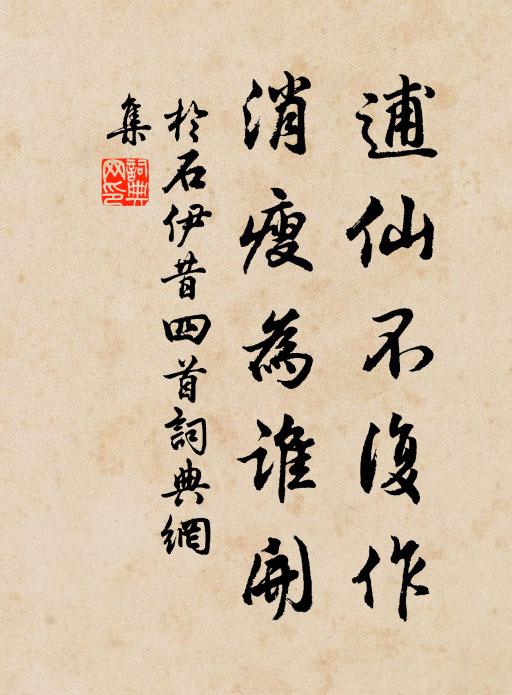 逋仙不復作
消瘦為誰開
於石伊昔四首詞典網
集
詞典網印